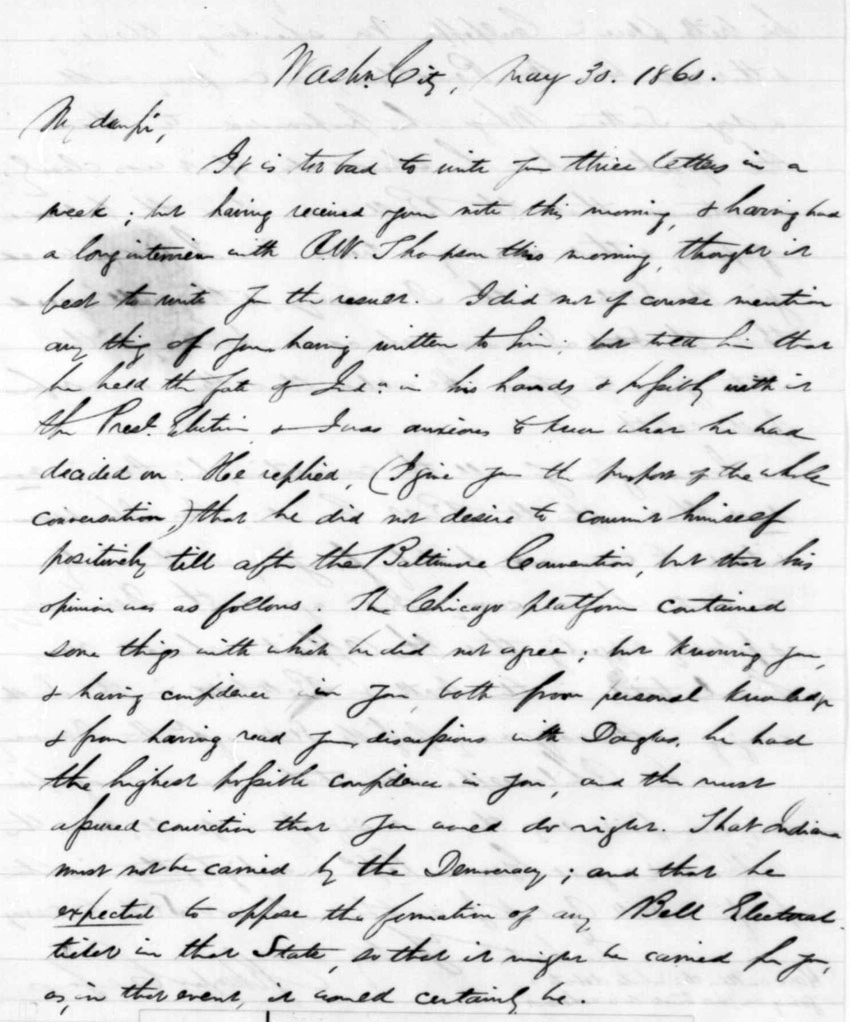 Washn. City, May 30. 1860.
My dear Sir,
It is too bad to write you three letters in a
week; but having received your note this morning, & having had
a long interview with R.W. Thompson this morning, thought it
best to write you the result. I did not of course mention
any thing of your having written to him; but told him that
he held the fate of Inda. in his hands & possibly with it
the Presl. Election & I was anxious to know what he had
decided on. He replied, (I give you the purport of the whole
conversation,) that he did not desire to commit himself
positively till after the Baltimore Convention, but that his
opinion was as follows. The Chicago platform contained
some things with which he did not agree; but knowing you,
& having confidence in you, both from personal knowledge
& from having read your discussions with Douglas, he had
the highest possible confidence in you, and the most
assured conviction that you would do right. That Indiana
must not be carried by the Democracy; and that he
expected to oppose the formation of any Bell Electoral
ticket in that State, so that it might be carried for you,
as, in that event, it would certainly be.